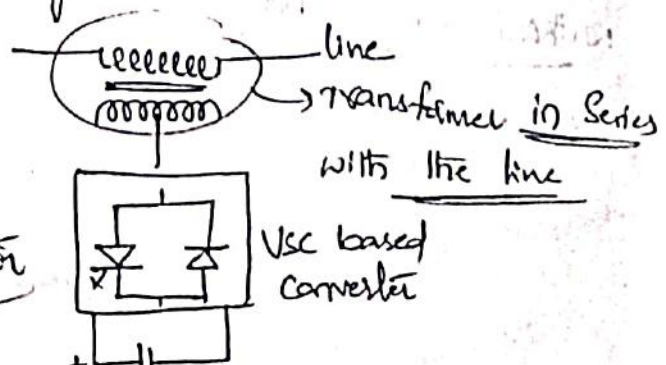 line
Transformer in Series
with the line
VSC based
converter
+